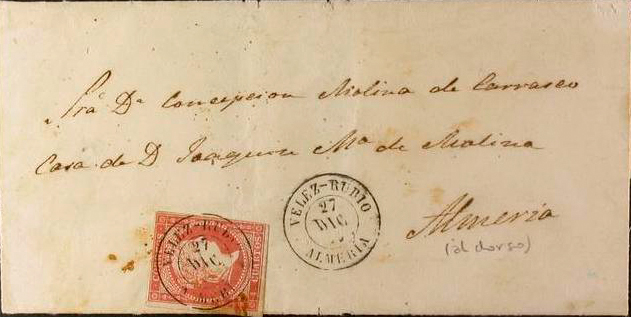 Sra Da Concepcion Molina de Carrasco
Casa de D Joaquin Ma de Molina
Almeria
(al dorso)
VELEZ-RUBIO
27
DIC
ALMERIA
VELEZ-RU
27
DIC